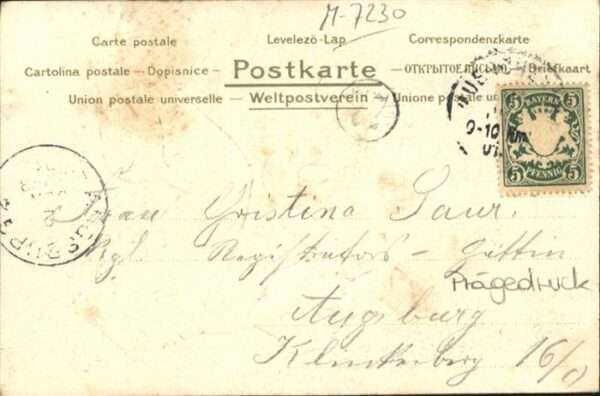 M-7230
Carte postale Levelezö-Lap Correspondenzkarte
Cartolina postale — Dopisnice — Postkarte — ОТКРЫТОЕ ПИСЬМО — Briefkaart
Union postale universelle — Weltpostverein — Unione postale
BAYERN
5 5
5 PFENNIG 5
9-10
Frau Cristina Saur.
Kgl. Registrators-Gattin
Prägedruck
Augsburg
Klinkerberg 16/